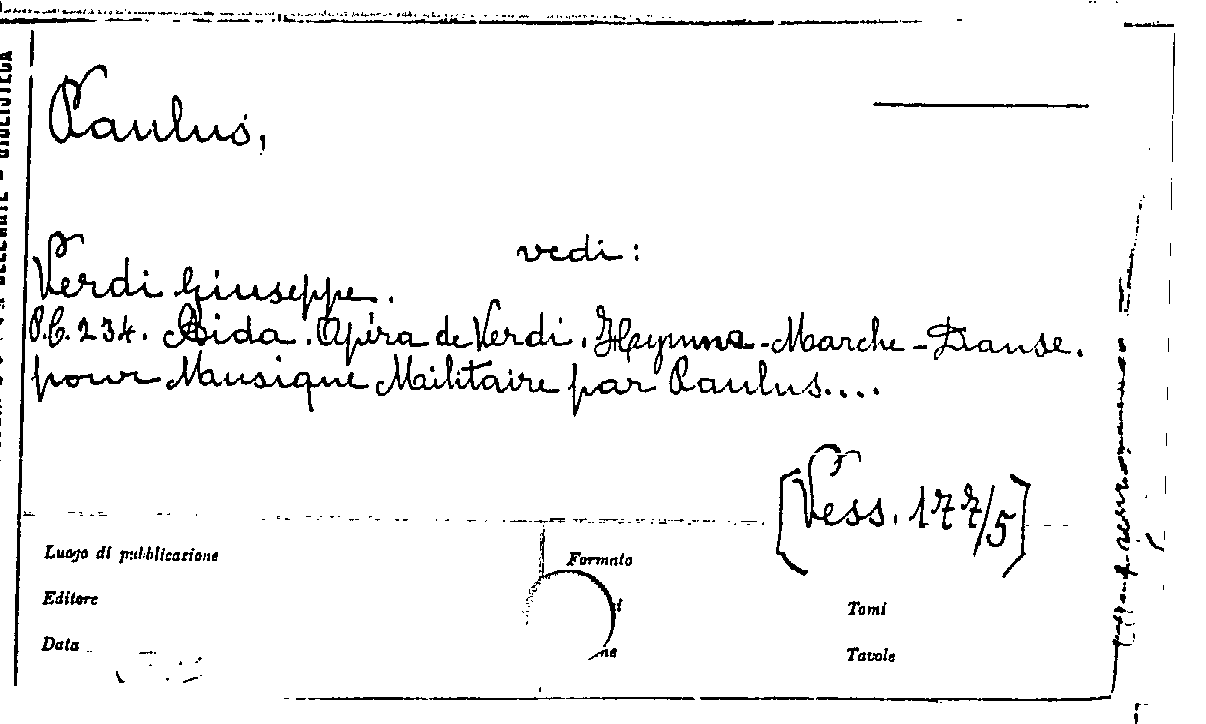 Paulus,
vedi:
Verdi Giuseppe.
P.C. 234. Aida. Opéra de Verdi. Hymne - Marche - Danse.
pour Musique Militaire par Paulus....
[Vess. 177/5]
Luogo di pubblicazione
Formato
Editore
Tomi
Data
Tavole